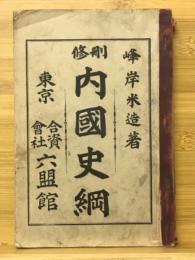 峰岸米造著
刪修
内國史綱
東京
合資
會社
六盟館